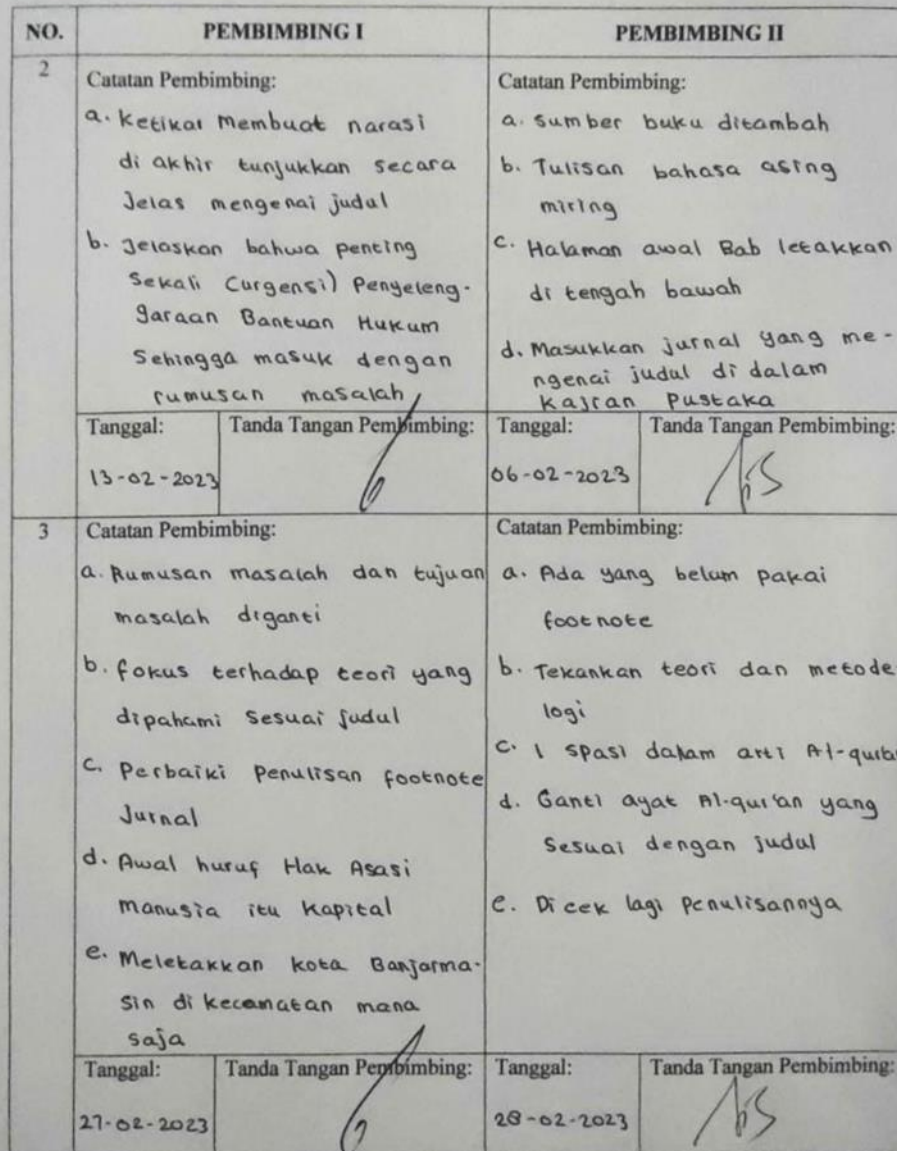 NO.
PEMBIMBING I
PEMBIMBING II
2
Catatan Pembimbing:
a. Ketikar Membuat narasi
di akhir tunjukkan secara
Jelas mengenai judul
b. Jelaskan bahwa penting
Sekali (urgensi) Penyeleng-
garaan Bantuan Hukum
Sehingga masuk dengan
rumusan masalah
Tanggal:
Tanda Tangan Pembimbing:
13-02-2023
Catatan Pembimbing:
a. sumber buku ditambah
b. Tulisan bahasa asing
miring
c. Halaman awal Bab letakkan
di tengah bawah
d. Masukkan jurnal yang me-
ngenai judul di dalam
Kajian Pustaka
Tanggal:
Tanda Tangan Pembimbing:
06-02-2023
3
Catatan Pembimbing:
a. Rumusan masalah dan tujuan
masalah diganti
b. fokus terhadap teori yang
dipahami Sesuai judul
c. Perbaiki Penulisan footnote
Jurnal
d. Awal huruf Hak Asasi
Manusia itu Kapital
e. Meletakkan kota Banjarma-
sin di kecamatan mana
saja
Tanggal:
Tanda Tangan Pembimbing:
27-02-2023
Catatan Pembimbing:
a. Ada yang belum pakai
footnote
b. Tekankan teori dan metode
logi
c. 1 spasi dalam arti
d. Ganti ayat Al-qur'an yang
Sesuai dengan judul
e. Di cek lagi Penulisannya
Tanggal:
Tanda Tangan Pembimbing:
28-02-2023